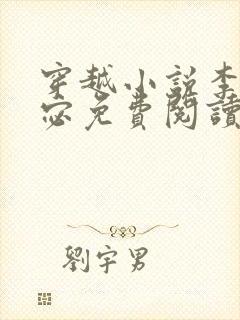 穿越小說李
宓免費閱讀
劉宇男